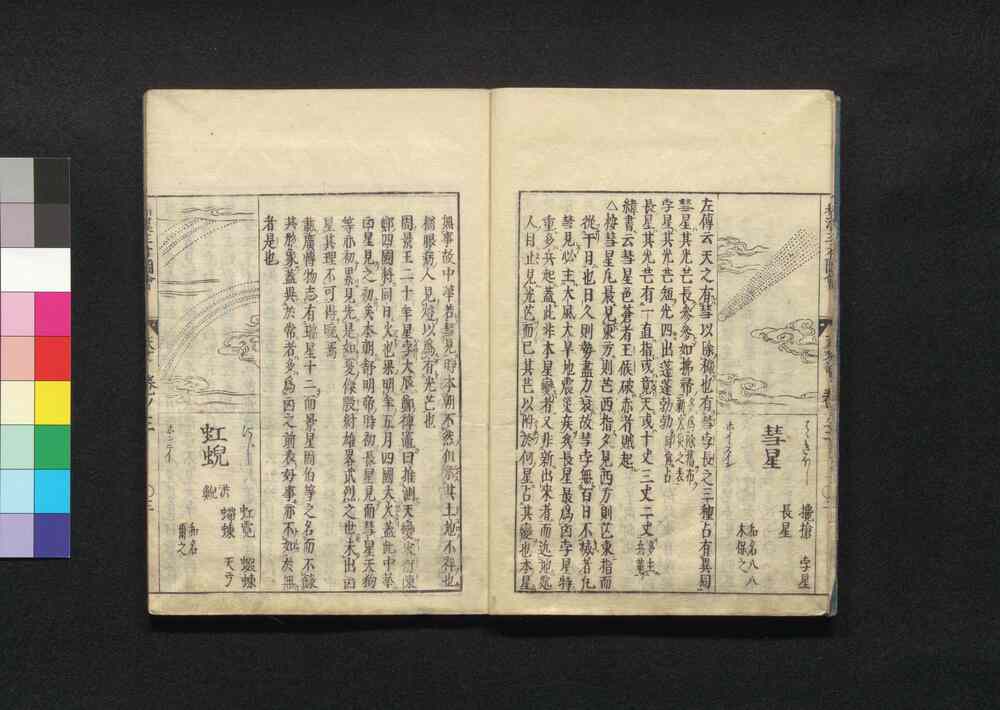 彗星
欃槍
孛星
長星
和名八八
木保之
左傳云天之有彗以除穢也有彗孛長之三種占有異同
彗星其光芒長參參如掃帚
孛星其光芒短光四出蓬蓬勃勃
長星其光芒有一直指或竟天或十丈三丈二丈
緯書云彗星色蒼者王侯破赤者賊起
△按彗星凡晨見東方則芒西指夕見西方則芒東指而
從于日也日久則勢盡力衰故彗孛無百日不滅者凡
彗見必主大風大旱地震災疾矣長星最爲凶孛星特
重多兵起蓋此非本星變者又非新出來者而近地
人目止見光芒而已其芒以附於何星占其變也本星
無事故中華若彗見時本朝不然但其土地不祥也
猶眼病人見燈以爲有光芒也
周景王二十年星孛大辰鄭裨竈曰推測天變宋衞陳
鄭四國時同日火也果明年五月四國大火蓋此中華
孛星見之初矣本朝舒明帝時初長星見爾彗星天狗
等亦初累見先是如夏傑殷紂雄畧武烈之世未出凶
星其理不可得
載廣博物志有瑞星十二而景星周伯等之名而不錄
其形象蓋異於常者多爲凶之前表好事亦不如於無
者是也
虹蜺
虹霓
蝃蝀
天弓
和名
爾之
ホンテイ